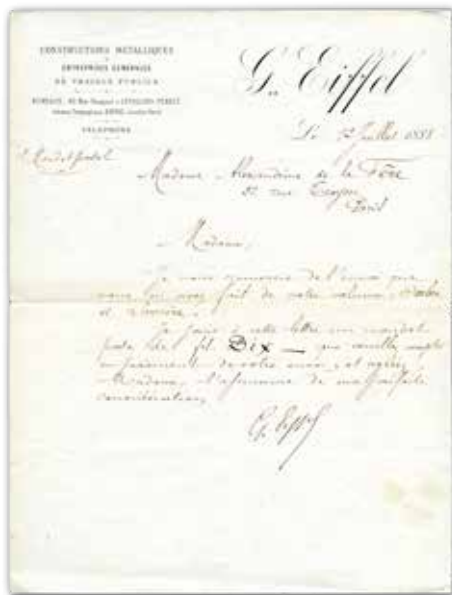 CONSTRUCTIONS MÉTALLIQUES
ENTREPRISES GÉNÉRALES
DE TRAVAUX PUBLICS
G. Eiffel
TÉLÉPHONE
Le Juillet 1888
1 Mandat postal
Madame Alexandrine de la Fère
rue Troyon
Paris
Madame,
Je vous remercie de l'envoi que
vous m'avez fait de votre volume,
et Lumière.
Je joins à cette lettre un mandat
poste de f. Dix — que veuillez
en paiement de votre envoi, et agréez
Madame, l'assurance de ma parfaite
considération,
G. Eiffel